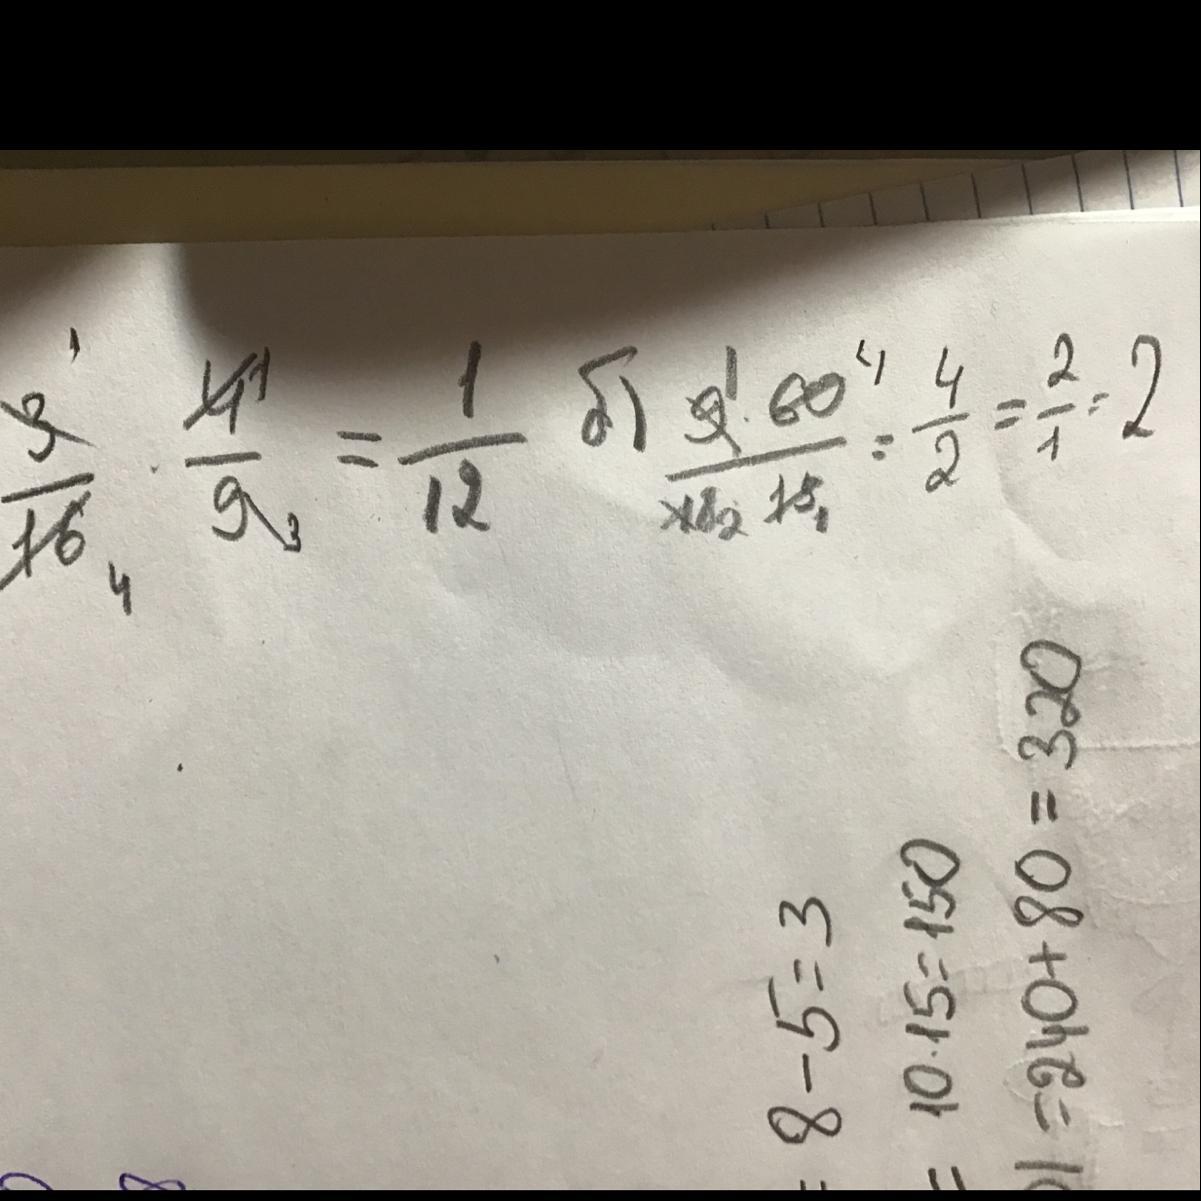 3/16 · 4/9 = 1/12
б) 9 · 60 / 18 · 15 = 4/2 = 2/1 = 2
8 - 5 = 3
= 10 · 15 = 150
= 240 + 80 = 320